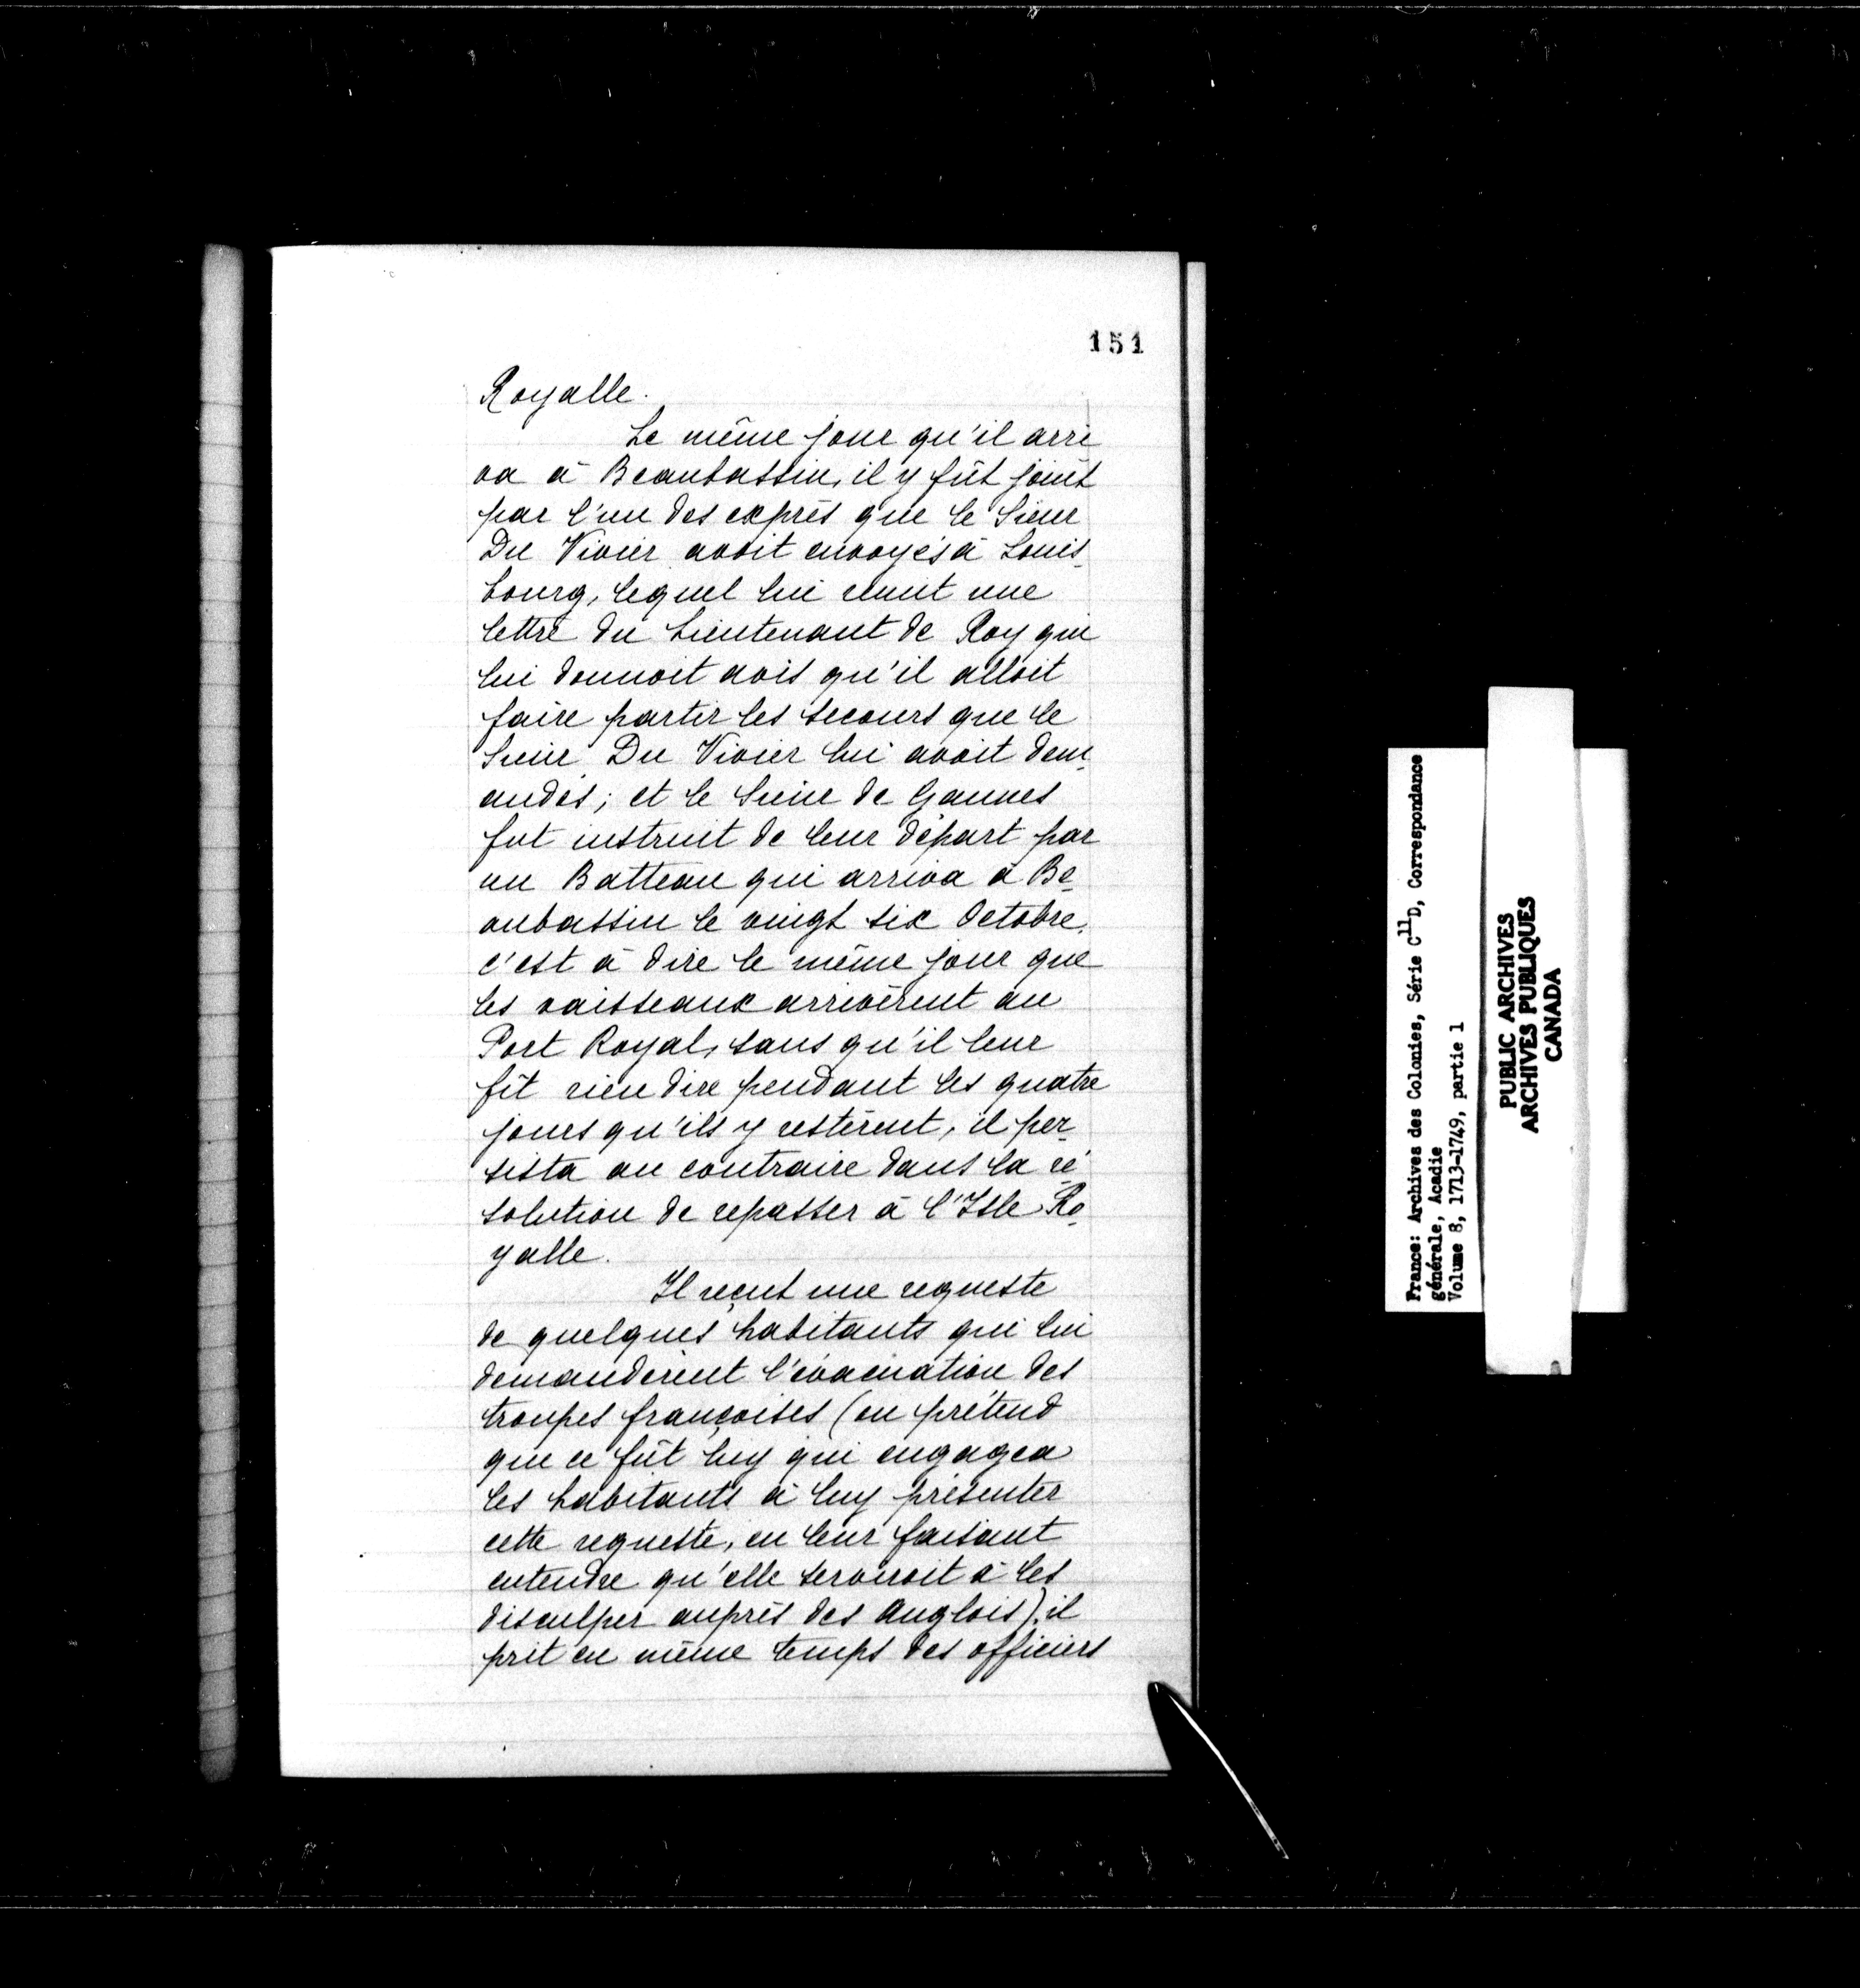 151
Royalle.
Le même jour qu'il arri
va à Beaubassin, il y fût joint
par l'un des exprès que le Sieur
Du Vivier avoit envoyés à Louis-
bourg, lequel lui remit une
lettre du Lieutenant de Roy qui
lui donnoit avis qu'il alloit
faire partir les secours que le
Sieur Du Vivier lui avoit dem-
andés; et le Sieur de Gannes
fut instruit de leur départ par
un Batteau qui arriva à Be-
aubassin le vingt six Octobre,
c'est à dire le même jour que
les vaisseaux arrivèrent au
Port Royal, sans qu'il leur
fît rien dire pendant les quatre
jours qu'ils y restèrent, il per-
sista au contraire dans la ré
solution de repasser à l'Isle Ro-
yalle.
Il reçut une requeste
de quelques habitants qui lui
demandèrent l'évacuation des
troupes françoises (on prétend
que ce fût luy qui engagea
les habitants à luy présenter
cette requeste, en leur faisant
entendre qu'elle serviroit à les
disculper auprès des Anglois), il
prit en même temps des officiers
France: Archives des Colonies, Série C11D, Correspondance
générale, Acadie
Volume 8, 1713-1749, partie 1
PUBLIC ARCHIVES
ARCHIVES PUBLIQUES
CANADA